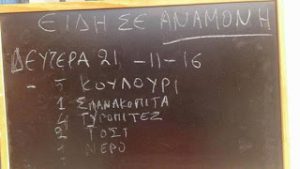 ΕΙΔΗ ΣΕ ΑΝΑΜΟΝΗ
ΔΕΥΤΕΡΑ 21 -11-16
- 5 ΚΟΥΛΟΥΡΙ
1 ΣΠΑΝΑΚΟΠΙΤΑ
4 ΤΥΡΟΠΙΤΕΣ
2 ΤΟΣΤ
ΝΕΡΟ